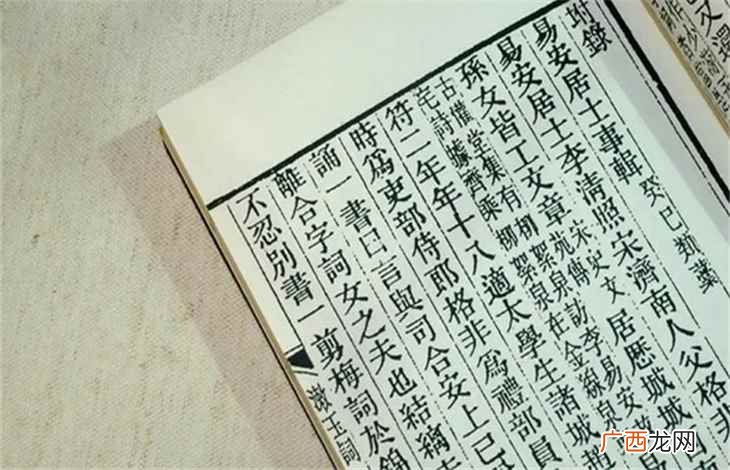 坿錄
易安居士事輯 癸巳類藁
易安居士李清照宋濟南人父格非
孫女皆工文章宋史文苑傳居歷城城
古懽堂集有柳絮泉訪李易安
宅詩據齊乘柳絮泉在金線泉
符二年年十八適太學生諸城
時爲吏部侍郎格非爲禮部員
誦一書曰言與司合安上已
離合字詞女之夫也結縭
不忍別書一剪梅詞於錦
漱玉詞
广西龙网